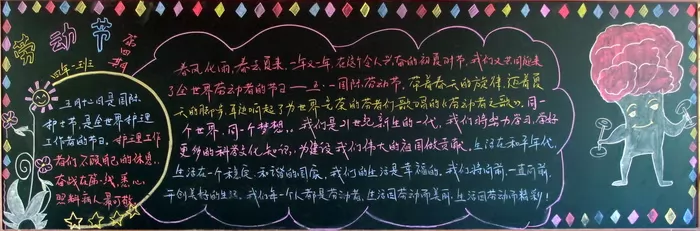 劳动节
第四期
四年一班
五月十二日是国际
护士节,是全世界护理
工作者的节日。护理工作
者们不顾自己的休息,
奋战在第一线,悉心
照料病人最可敬
春风化雨,春去夏来,一年又一年,在这个令人兴奋的初夏时节,我们又共同迎来
了全世界劳动者的节日——五·一国际劳动节。带着春天的旋律,迈着夏
天的脚步,耳边响起了为世界元庆的劳者们歌唱的《劳动者之歌》。同一
个世界,同一个梦想。我们是21世纪新生的一代,我们将努力学习,掌好
更多的科学文化知识,为建设我们伟大的祖国做贡献。生活在和平年代,
生活在一个稳定、和谐的国家,我们的生活是幸福的,我们将向前,一直向前,
开创美好的生活。我们每一个人都是劳动者,生活因劳动而美丽,生活因劳动而精彩!